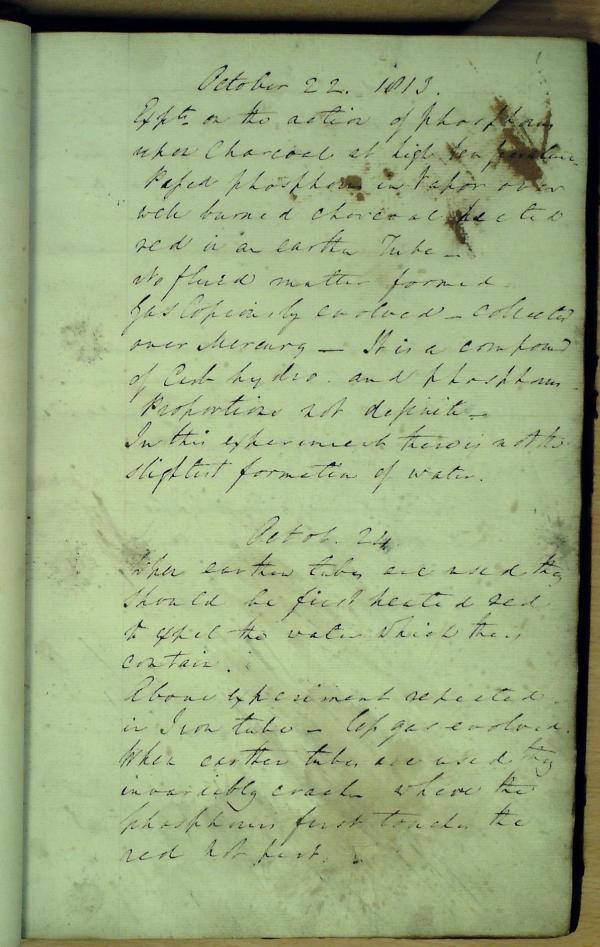 October 22. 1813.
Expts on the action of phosphorus
upon Charcoal at high temperature
Passed phosphorus in Vapor over
well burned charcoal heated
red in an earthen Tube —
No fluid matter formed
Gas Copiously evolved — collected
over Mercury — It is a compound
of Carb hydro. and phosphorus
Proportions not definite —
In this experiment there is not the
slightest formation of water.
Octob. 24
When earthen tubes are used they
should be first heated red
to expel the water which they
contain.
Above experiment repeated
in Iron tube — less gas evolved.
When earthen tubes are used they
invariably crack where the
phosphorus first touches the
red hot part.